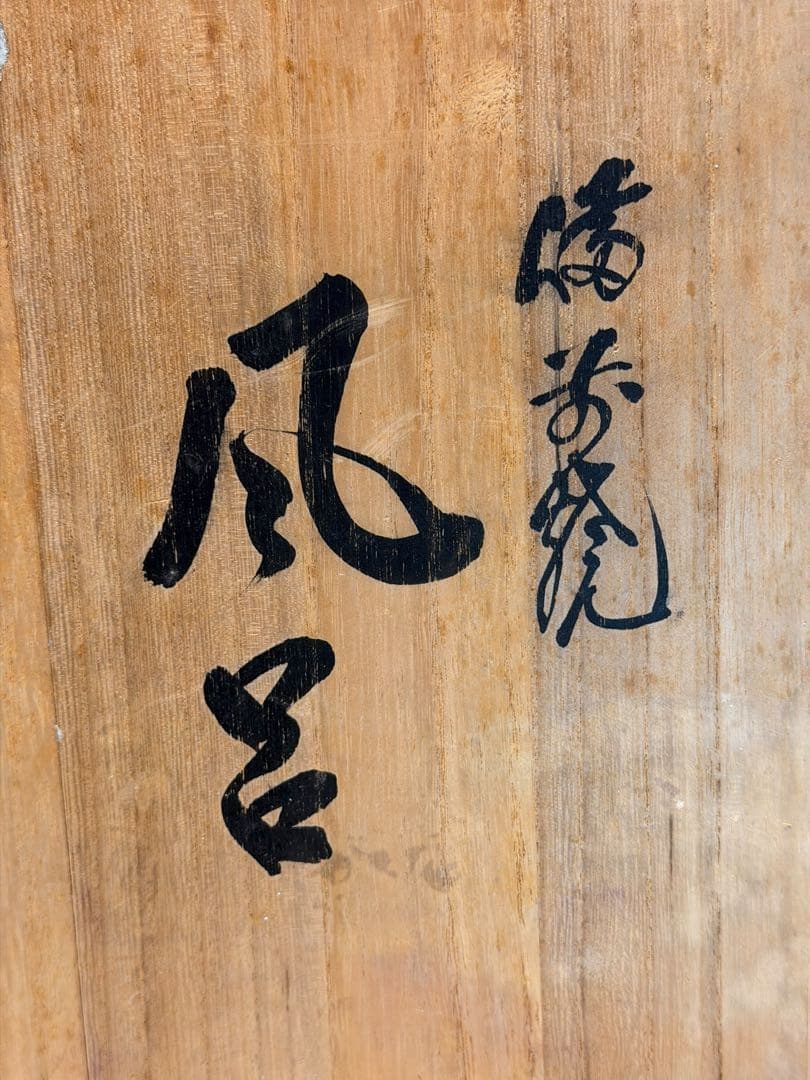 備前焼
風呂